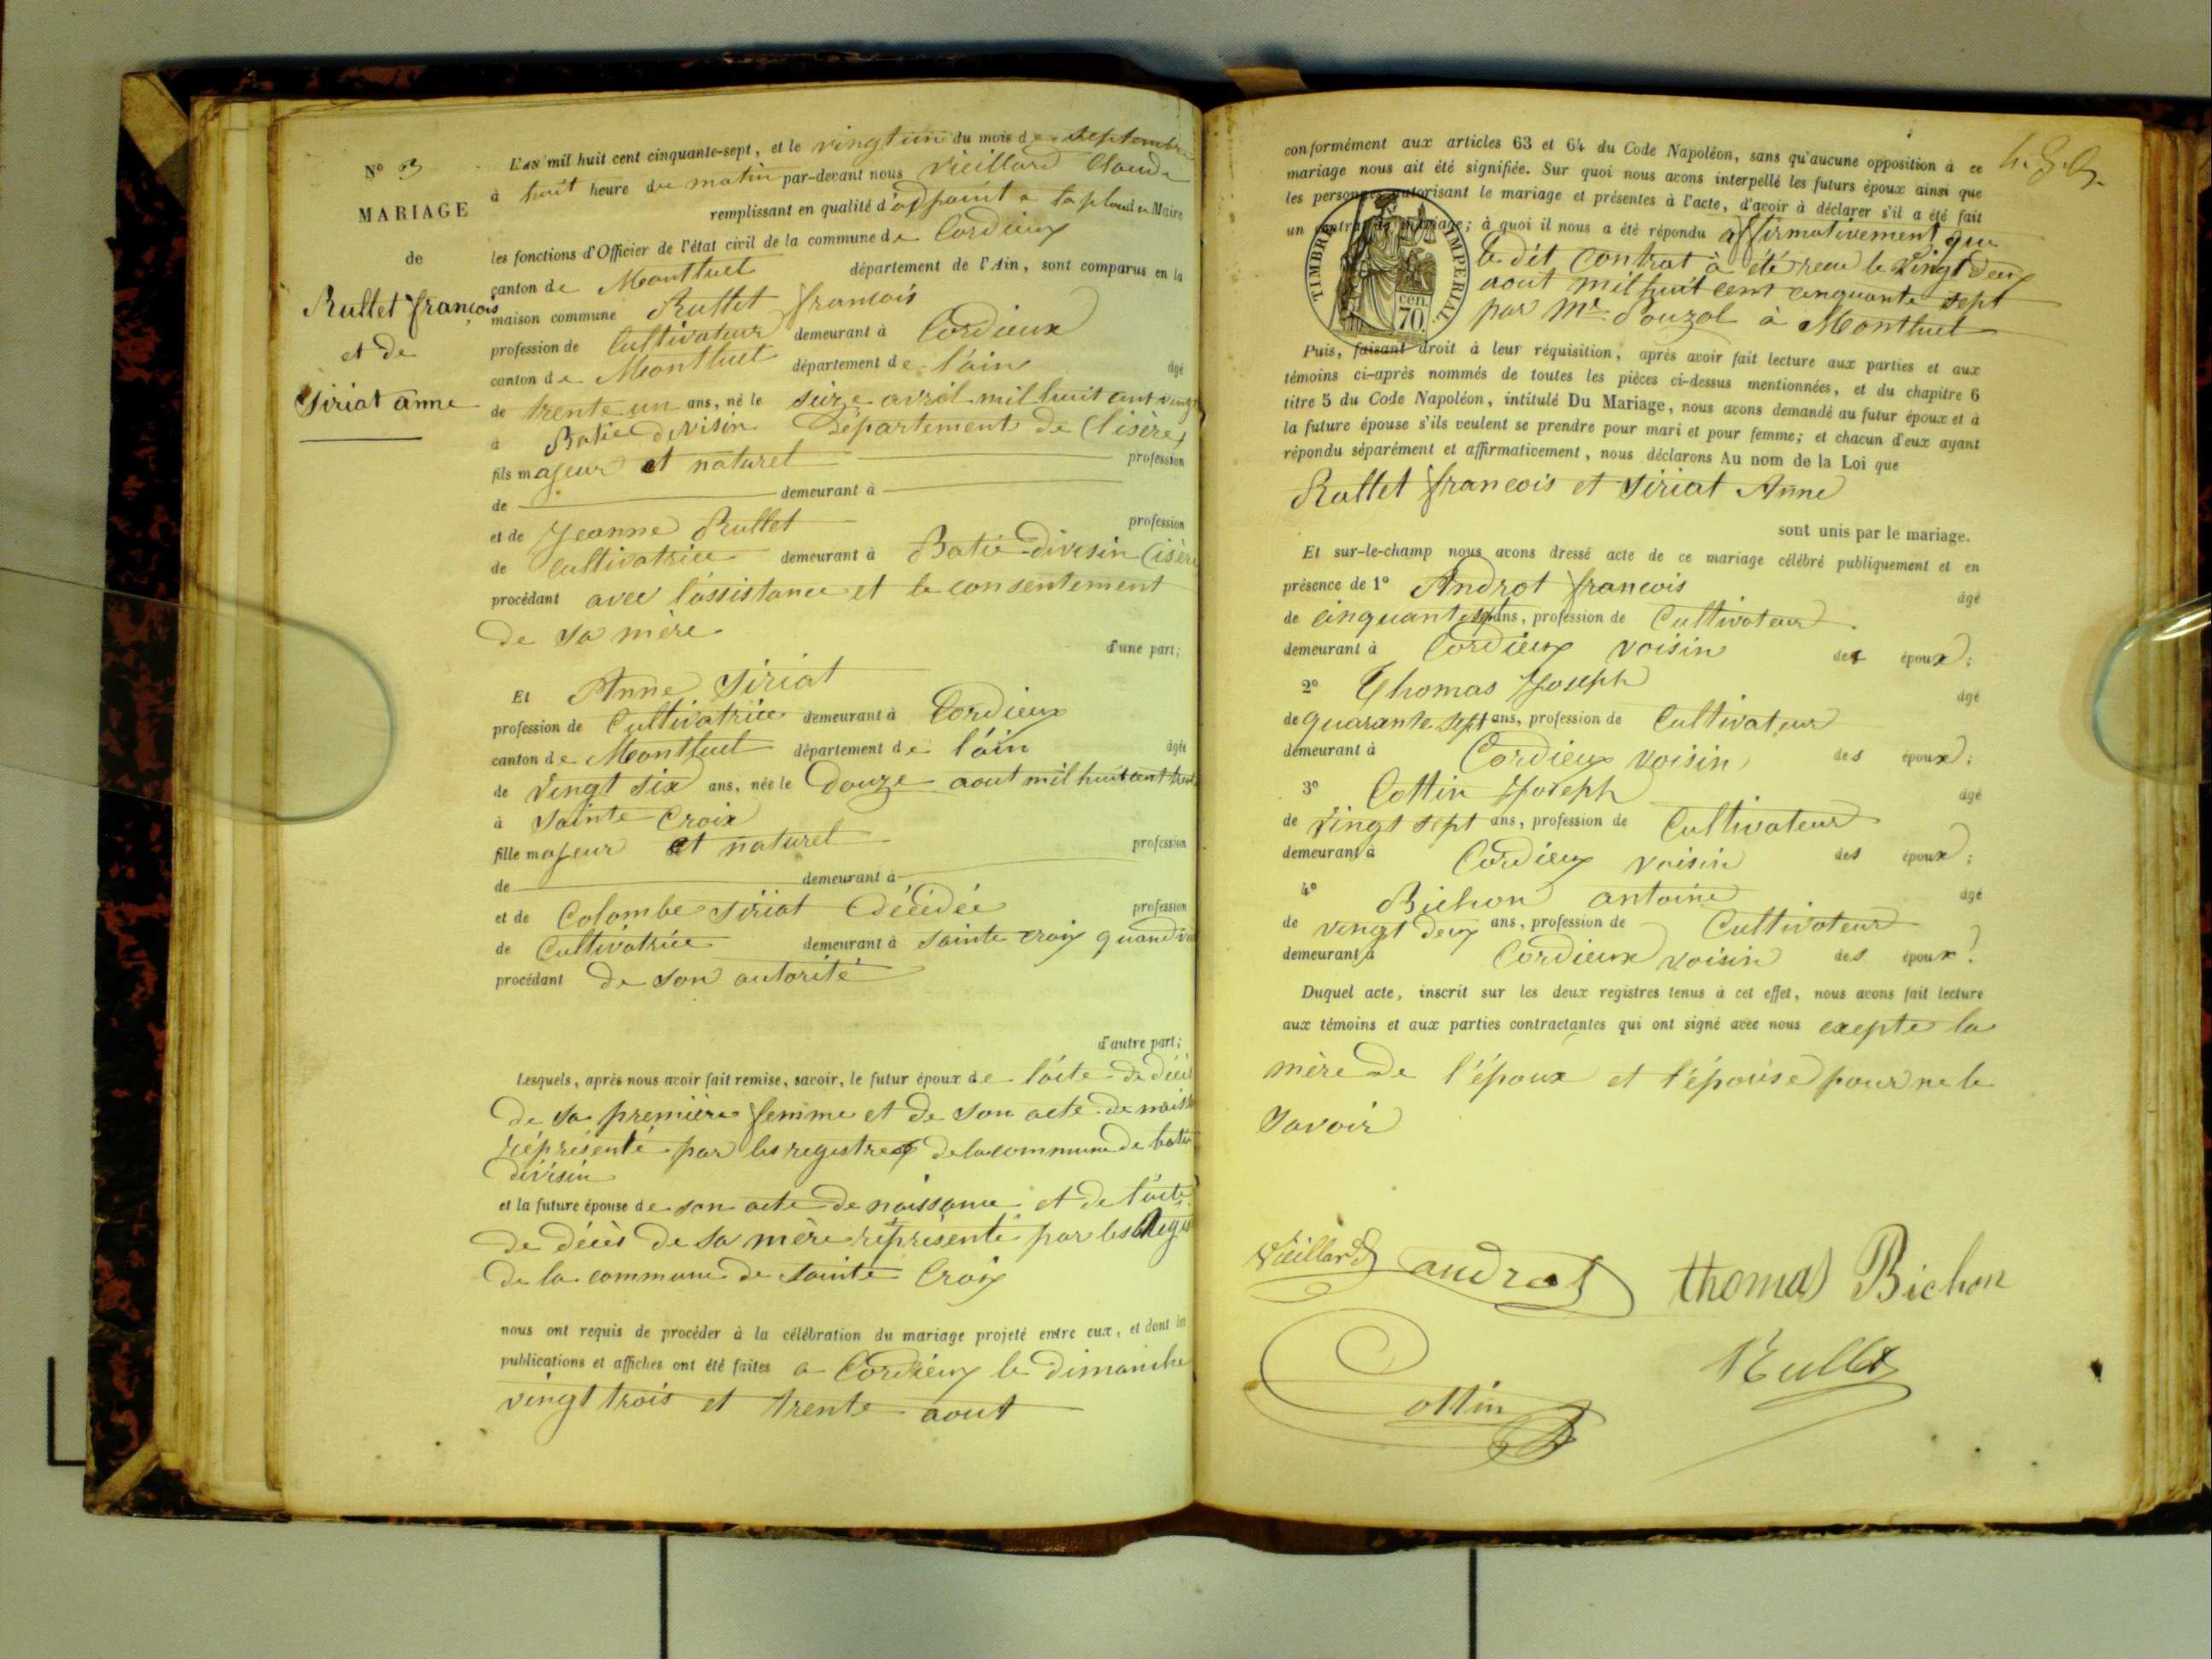 N° 3
MARIAGE
de
Rullet françois
et de
Siriat anne
L'an mil huit cent cinquante-sept, et le vingt un du mois de Septembre
à huit heure du matin par-devant nous Vieillard Claude
remplissant en qualité d'adjoint a la place du Maire
les fonctions d'Officier de l'état civil de la commune de Cordieux
canton de Montluel département de l'Ain, sont comparus en la
maison commune Rullet françois
profession de Cultivateur demeurant à Cordieux
canton de Montluel département de l'ain âgé
de trente un ans, né le seize avril mil huit cent vingt
à Batie divisin Département de (l'isère)
fils majeur et naturel profession
de demeurant à
et de Jeanne Rullet profession
de cultivatrice demeurant à Batie-divisin (isère
procédant avec l'assistance et le consentement
de sa mère
d'une part;
Et Anne Siriat
profession de Cultivatrice demeurant à Cordieux
canton de Montluel département de l'ain âgée
de vingt six ans, née le Douze aout mil huit cent
à Sainte Croix
fille majeur et naturel profession
de demeurant à
et de Colombe Siriat Décédée profession
de Cultivatrice demeurant à Sainte croix quand
procédant de son autorité
d'autre part;
Lesquels, après nous avoir fait remise, savoir, le futur époux de l'acte de
de sa première femme et de son acte de
réprésenté par les registres de la commune de batie
divisin
et la future épouse de son acte de naissance et de l'acte
de décès de sa mère réprésenté par les
de la commune de Sainte Croix
nous ont requis de procéder à la célébration du mariage projeté entre eux, et dont
publications et affiches ont été faites a Cordieux le dimanche
vingt trois et trente aout
conformément aux articles 63 et 64 du Code Napoléon, sans qu'aucune opposition à ce
mariage nous ait été signifiée. Sur quoi nous avons interpellé les futurs époux ainsi que
les personnes autorisant le mariage et présentes à l'acte, d'avoir à déclarer s'il a été fait
un contrat de mariage; à quoi il nous a été répondu affirmativement que
le dit contrat à été recu le vingt deux
aout mil huit cent cinquante sept
par Mr Pouzol à Montluel
TIMBRE IMPERIAL
cen.
70
Puis, faisant droit à leur réquisition, après avoir fait lecture aux parties et aux
témoins ci-après nommés de toutes les pièces ci-dessus mentionnées, et du chapitre 6
titre 5 du Code Napoléon, intitulé Du Mariage, nous avons demandé au futur époux et à
la future épouse s'ils veulent se prendre pour mari et pour femme; et chacun d'eux ayant
répondu séparément et affirmativement, nous déclarons Au nom de la Loi que
Rullet francois et Siriat Anne
sont unis par le mariage.
Et sur-le-champ nous avons dressé acte de ce mariage célébré publiquement et en
présence de 1° Androt francois âgé
de cinquante sept ans, profession de Cultivateur
demeurant à Cordieux voisin des époux;
2° Thomas Joseph âgé
de quarante sept ans, profession de Cultivateur
demeurant à Cordieux voisin des époux;
3° Cottin Joseph âgé
de vingt sept ans, profession de Cultivateur
demeurant à Cordieux voisin des époux;
4° Bichon antoine âgé
de vingt deux ans, profession de Cultivateur
demeurant à Cordieux voisin des époux.
Duquel acte, inscrit sur les deux registres tenus à cet effet, nous avons fait lecture
aux témoins et aux parties contractantes qui ont signé avec nous exepte la
mère de l'époux et l'épouse pour ne le
savoir
Vieillard androt thomas Bichon
Cottin Rullet